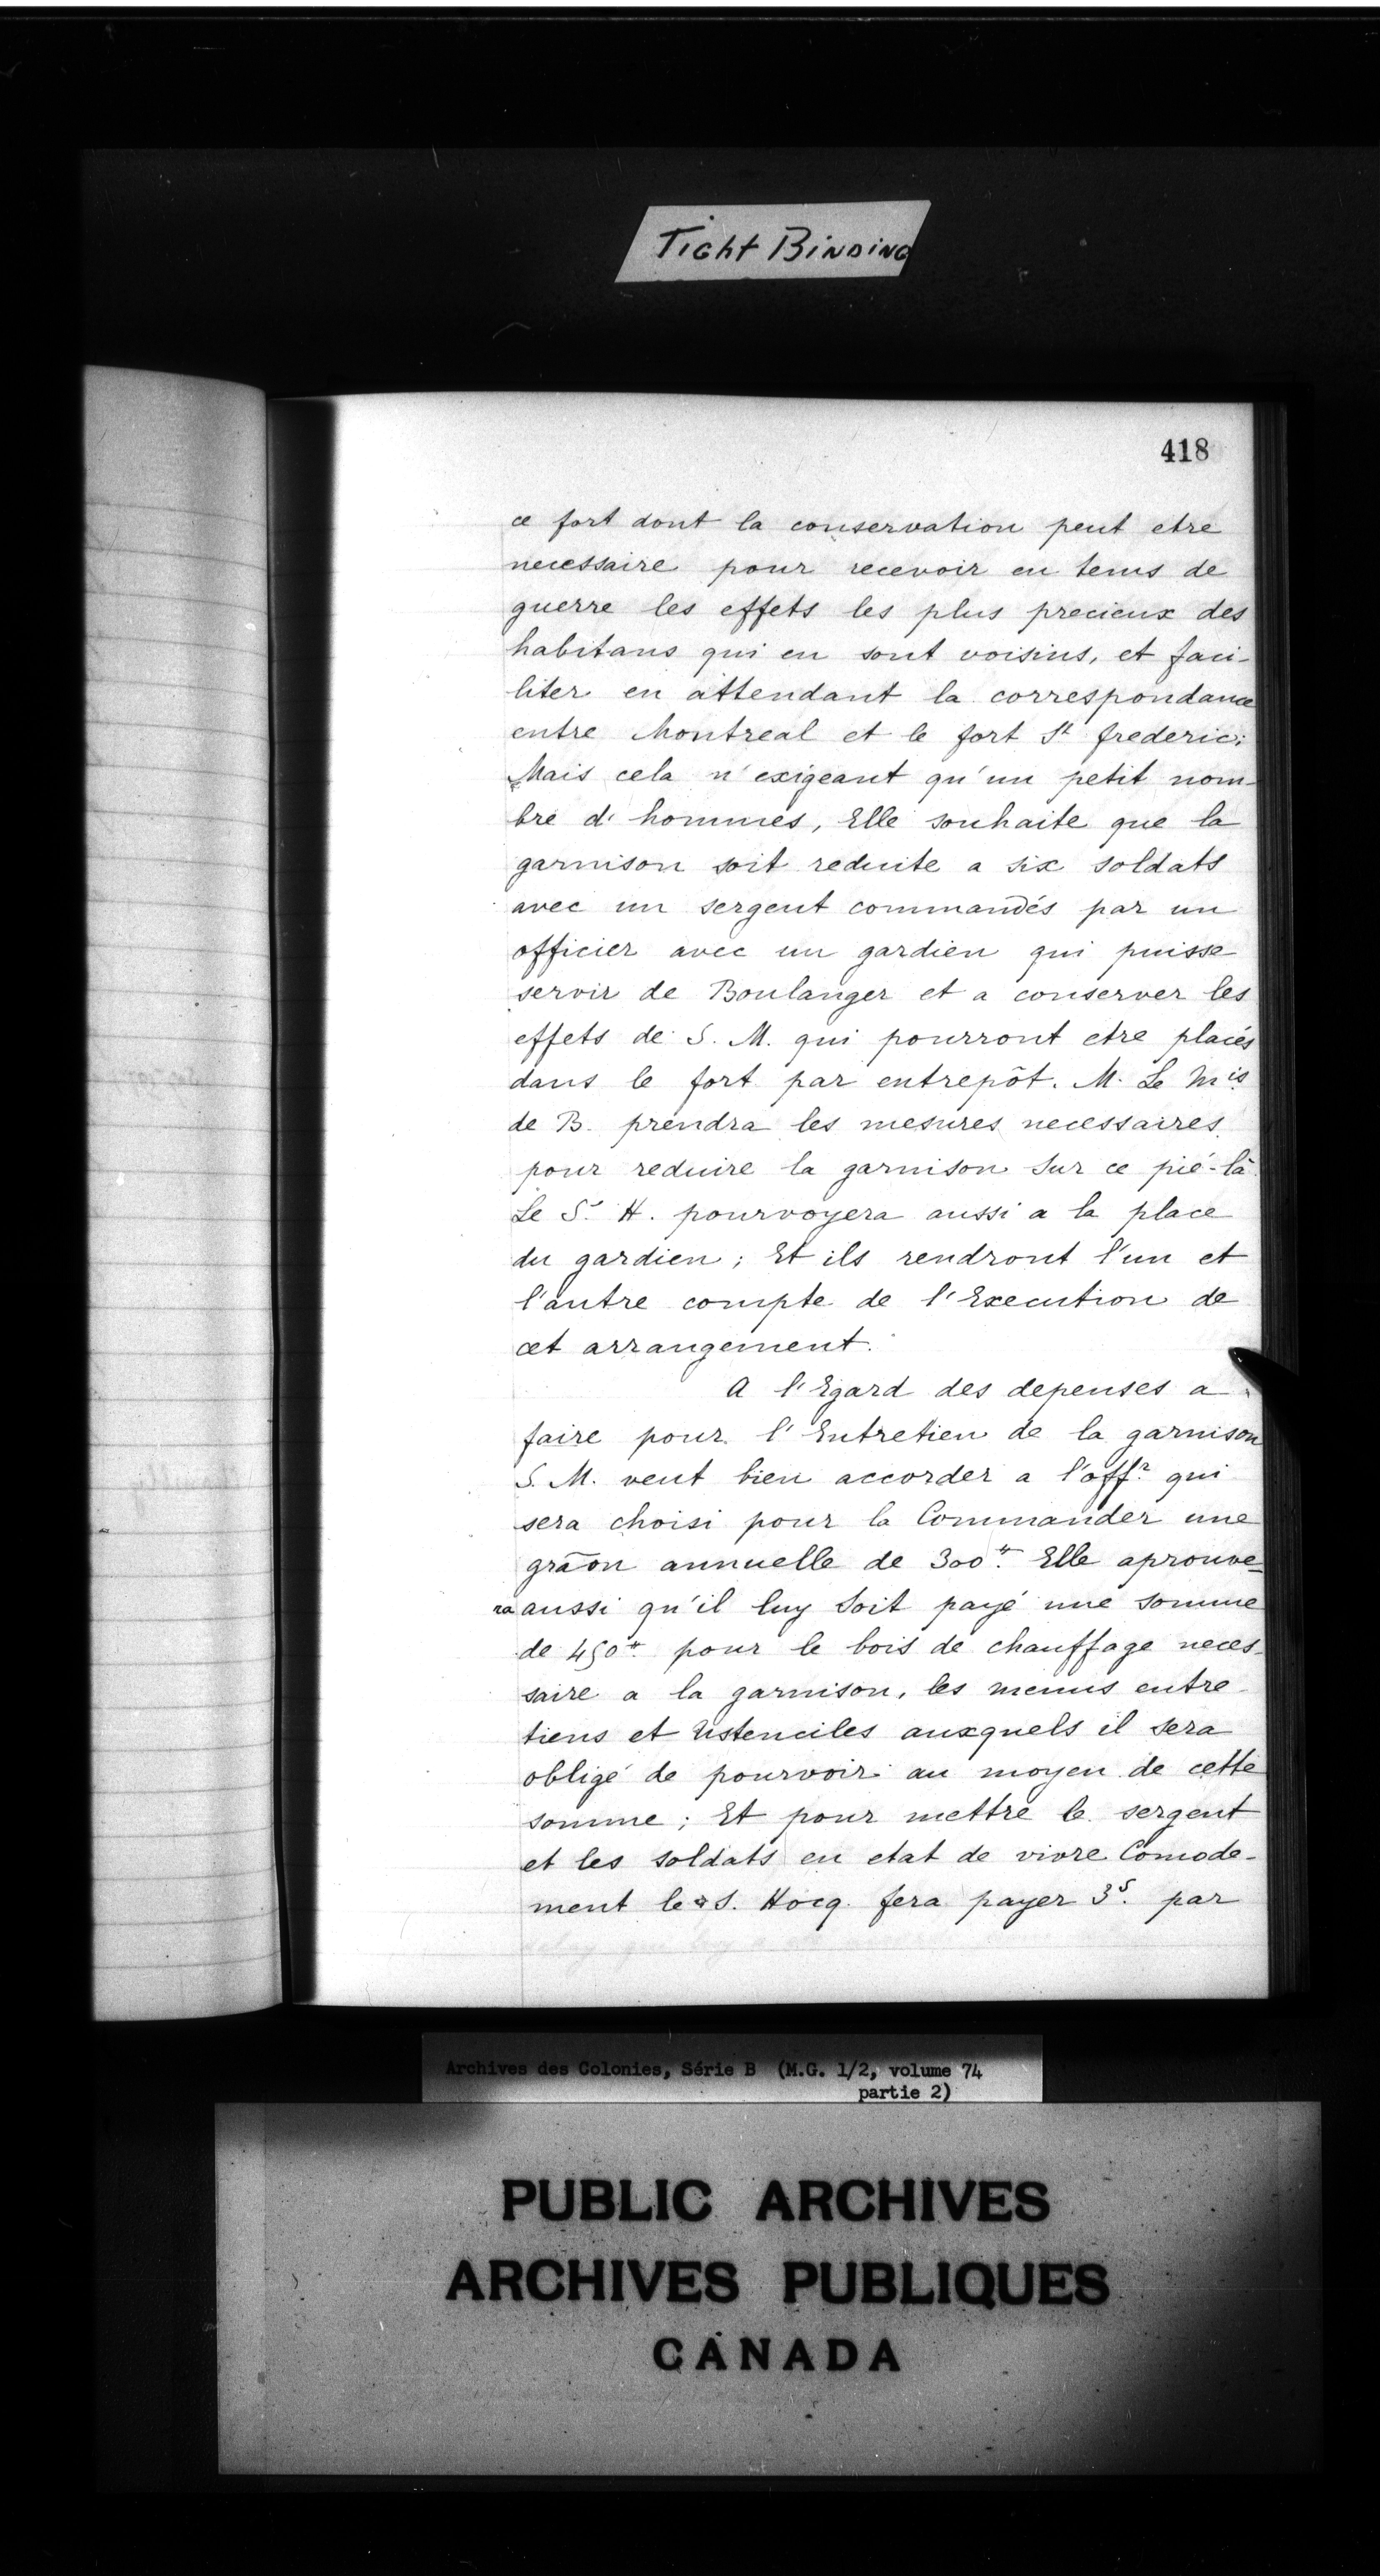 Tight Binding
418
ce fort dont la conservation peut etre
necessaire pour recevoir en tems de
guerre les effets les plus precieux des
habitans qui en sont voisins, et faci-
liter en attendant la correspondance
entre Montreal et le fort St frederic;
Mais cela n'exigeant qu'un petit nom-
bre d'hommes, Elle souhaite que la
garnison soit reduite a six soldats
avec un sergent commandés par un
officier avec un gardien qui puisse
servir de Boulanger et a conserver les
effets de S. M. qui pourront etre placés
dans le fort par entrepôt. M. Le Mis
de B. prendra les mesures necessaires
pour reduire la garnison sur ce pié-là
Le Sr H. pourvoyera aussi a la place
du gardien; Et ils rendront l'un et
l'autre compte de l'Execution de
cet arrangement.
A l'Egard des depenses a
faire pour l'Entretien de la garnison
S. M. veut bien accorder a l'offr qui
sera choisi pour la Commander une
grãon annuelle de 300tt. Elle aprouve=
ra aussi qu'il luy soit payé une somme
de 450tt. pour le bois de chauffage neces-
saire a la garnison, les menus entre-
tiens et Ustenciles auxquels il sera
obligé de pourvoir au moyen de cette
somme; Et pour mettre le sergent
et les soldats en etat de vivre Comode-
ment le S. Hocq. fera payer 3s. par
Archives des Colonies, Série B (M.G. 1/2, volume 74
partie 2)
PUBLIC ARCHIVES
ARCHIVES PUBLIQUES
CANADA